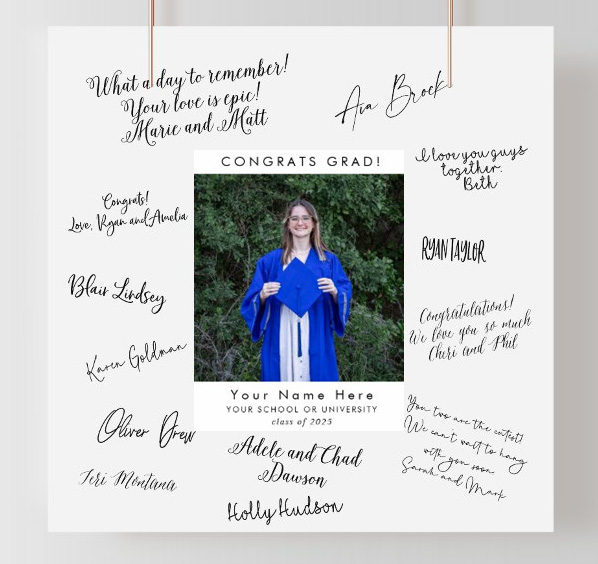 What a day to remember!
Your love is epic!
Marie and Matt
Ava Brock
CONGRATS GRAD!
I love you guys
together.
Beth
Congrats!
Love, Ryan and Amelia
RYAN TAYLOR
Blair Lindsey
Congratulations!
We love you so much
Cheri and Phil
Karen Goldman
Your Name Here
YOUR SCHOOL OR UNIVERSITY
class of 2025
Oliver Drew
You two are the cutest!
We can't wait to hang
with you soon
Sarah and Mark
Adele and Chad
Dawson
Teri Montana
Holly Hudson